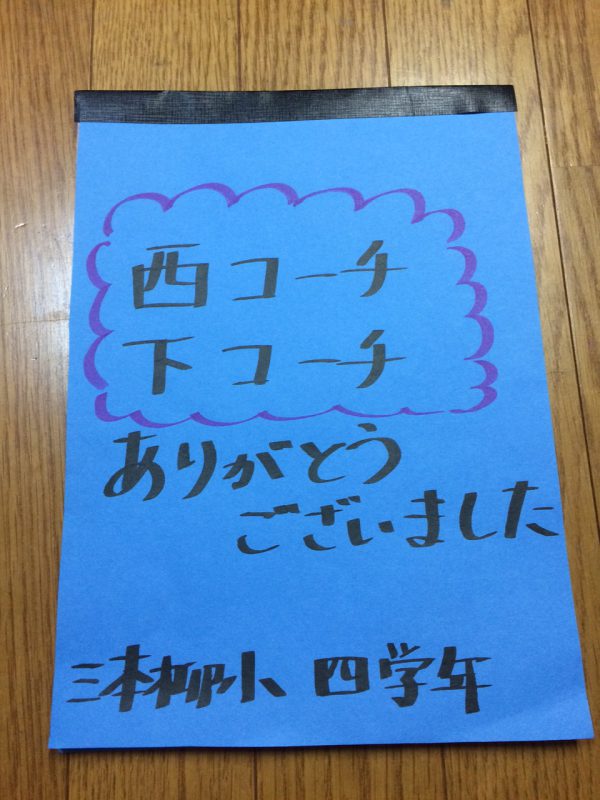 西コーチ
下コーチ
ありがとう
ございました
三本柳小 四学年